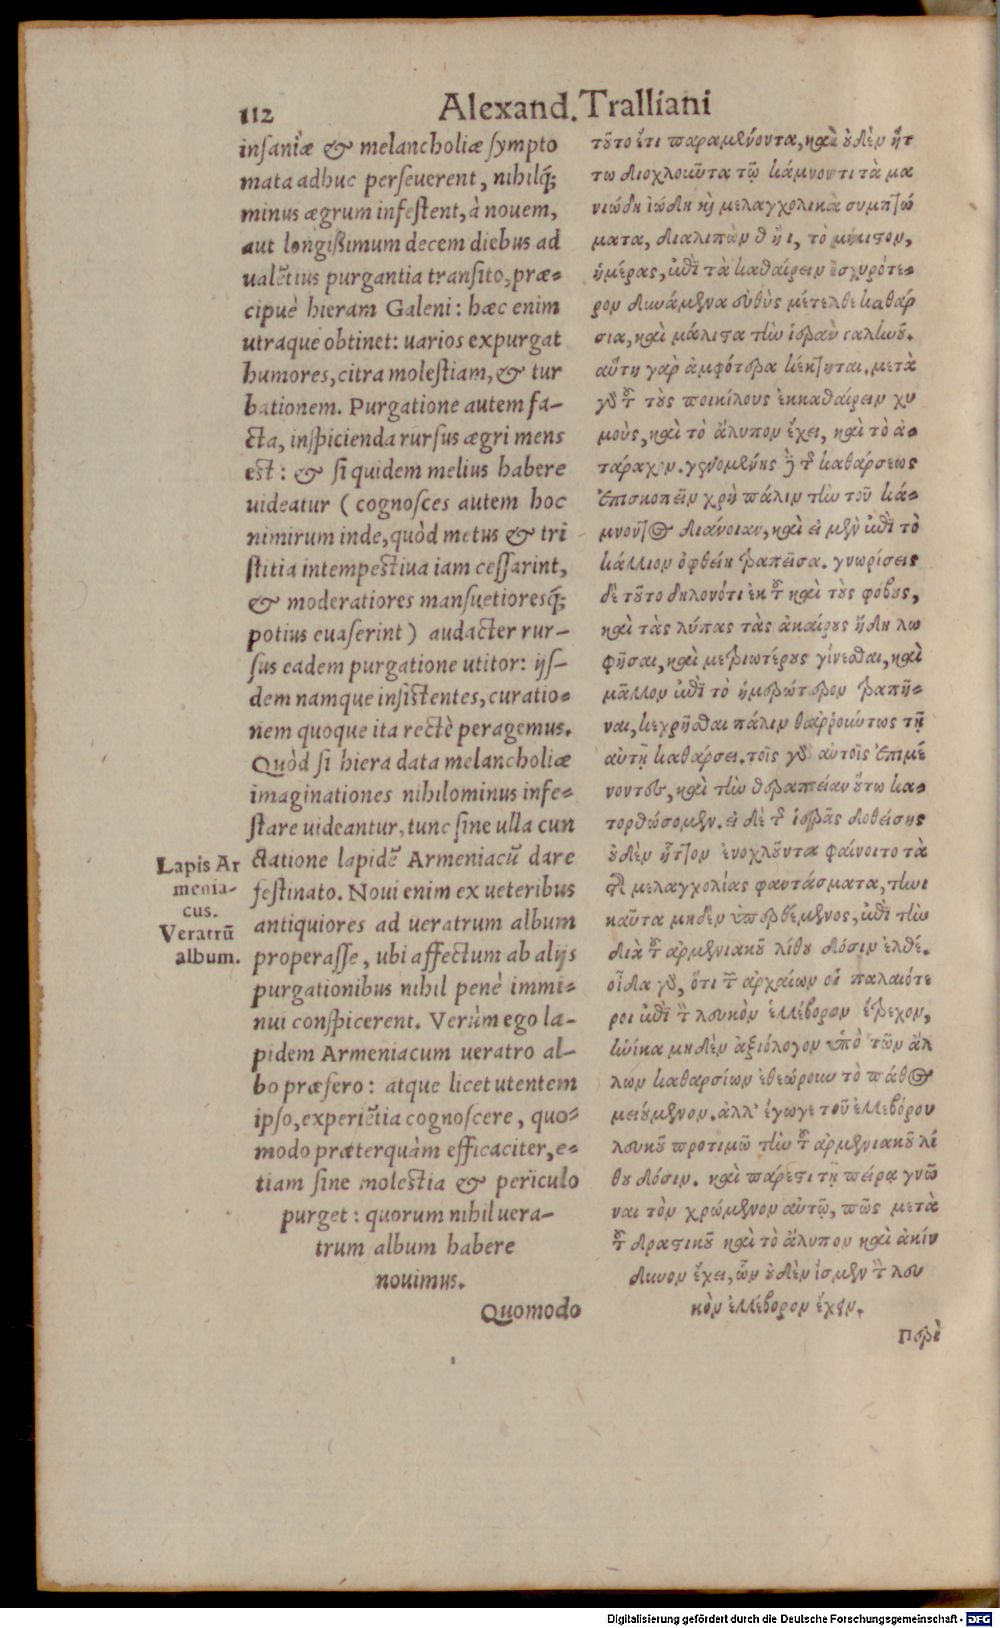 112
Alexand. Tralliani
insaniæ & melancholiæ sympto
mata adhuc perseuerent, nihilq́;
minus ægrum infestent, à nouem,
aut longißimum decem diebus ad
ualẽtius purgantia transito, præ-
cipuè hieram Galeni: hæc enim
utraque obtinet: uarios expurgat
humores, citra molestiam, & tur
bationem. Purgatione autem fa-
cta, inspicienda rursus ægri mens
est: & si quidem melius habere
uideatur ( cognosces autem hoc
nimirum inde, quòd metus & tri
stitia intempestiua iam cessarint,
& moderatiores mansuetioresq́;
potius euaserint ) audacter rur-
sus eadem purgatione utitor: ijs-
dem namque insistentes, curatio-
nem quoque ita rectè peragemus.
Quòd si hiera data melancholiæ
imaginationes nihilominus infe-
stare uideantur, tunc sine ulla cun
ctatione lapidẽ Armeniacũ dare
festinato. Noui enim ex ueteribus
antiquiores ad ueratrum album
properasse, ubi affectum ab alijs
purgationibus nihil penè immi-
nui conspicerent. Verùm ego la-
pidem Armeniacum ueratro al-
bo præfero: atque licet utentem
ipso, experiẽtia cognoscere, quo-
modo præterquàm efficaciter, e-
tiam sine molestia & periculo
purget: quorum nihil uera-
trum album habere
nouimus.
Quomodo
Lapis Ar
menia-
cus.
Veratrũ
album.
τοῦτο ἔτι παραμένοντα, καὶ οὐδὲν ἧτ
τω διοχλοῦντα τῷ κάμνοντι τὰ μα
νιώδη ἰώδη καὶ μελαγχολικὰ συμπτώ
ματα, διαλιπὼν θ ἢ ι, τὸ μήκιστον,
ἡμέρας, ἐπὶ τὰ καθαίρειν ἰσχυρότε-
ρον δυνάμενα εὐθὺς μέτελθε καθάρ
σια, καὶ μάλιστα τὴν ἱερὰν γαληνοῦ.
αὕτη γὰρ ἀμφότερα κέκτηται. μετὰ
γὰρ τοῦ τοὺς ποικίλους ἐκκαθαίρειν χυ
μοὺς, καὶ τὸ ἄλυπον ἔχει, καὶ τὸ ἀ-
τάραχον. γενομένης δὲ τῆς καθάρσεως
ἐπισκοπεῖν χρὴ πάλιν τὴν τοῦ κά-
μνοντος διάνοιαν, καὶ εἰ μὲν ἐπὶ τὸ
κάλλιον ὀφθείη τραπεῖσα. γνωρίσεις
δὲ τοῦτο δηλονότι ἐκ τοῦ καὶ τοὺς φόβους,
καὶ τὰς λύπας τὰς ἀκαίρους ἤδη λω
φῆσαι, καὶ μετριωτέρους γίνεσθαι, καὶ
μᾶλλον ἐπὶ τὸ ἡμερώτερον τραπῆ-
ναι, κεχρῆσθαι πάλιν θαῤῥούντως τῇ
αὐτῇ καθάρσει. τοῖς γὰρ αὐτοῖς ἐπιμέ
νοντες, καὶ τὴν θεραπείαν οὕτω κα-
τορθώσομεν. εἰ δὲ τῆς ἱερᾶς δοθείσης
οὐδὲν ἧττον ἐνοχλοῦντα φαίνοιτο τὰ
τῆς μελαγχολίας φαντάσματα, τηνι
καῦτα μηδὲν ὑπερθέμενος, ἐπὶ τὴν
διὰ τοῦ ἀρμενιακοῦ λίθου δόσιν ἐλθέ.
οἶδα γὰρ, ὅτι τῶν ἀρχαίων οἱ παλαιότε
ροι ἐπὶ τὸν λευκὸν ἑλλέβορον ἔτρεχον,
ἡνίκα μηδὲν ἀξιόλογον ὑπὸ τῶν ἄλ
λων καθαρσίων ἐθεώρουν τὸ πάθος
μειούμενον. ἀλλ' ἔγωγε τοῦ ἐλλεβόρου
λευκοῦ προτιμῶ τὴν τοῦ ἀρμενιακοῦ λί
θου δόσιν. καὶ πάρεστι τῇ πείρᾳ γνῶ
ναι τὸν χρώμενον αὐτῷ, πῶς μετὰ
τοῦ δραστικοῦ καὶ τὸ ἄλυπον καὶ ἀκίν
δυνον ἔχει, ὧν οὐδὲν ἴσμεν τὸν λευ
κὸν ἐλλέβορον ἔχειν.
Περὶ
Digitalisierung gefördert durch die Deutsche Forschungsgemeinschaft - DFG